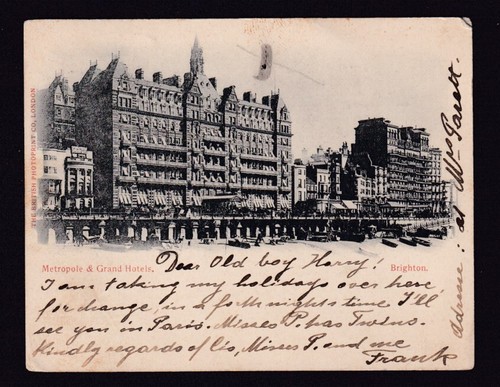 THE BRITISH PHOTOPRINT CO, LONDON
Metropole & Grand Hotels.
Brighton.
Dear Old boy Harry!
I am taking my holidays over here,
for change, in a forth nights time I'll
see you in Paris. Misses P. has Twins.
Kindly regards of Cis, Misses P. and me
Frank
Adresse: at Mrs